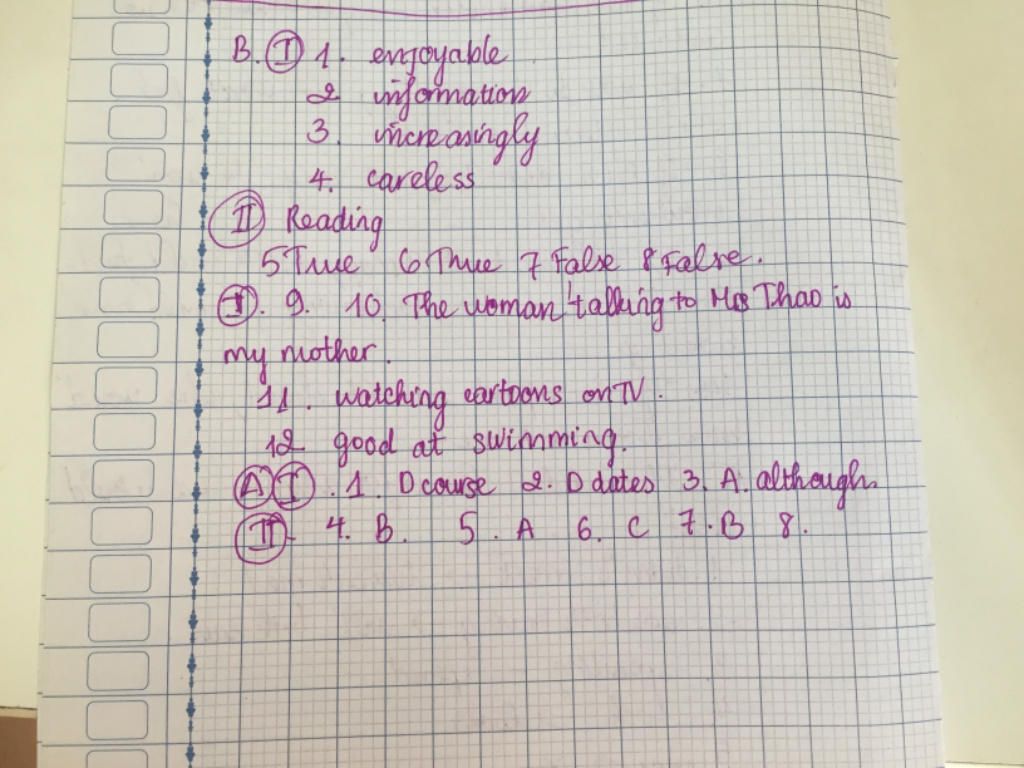 B. I 1. enjoyable
2 information
3. increasingly
4. careless
II Reading
5 True 6 True 7 False 8 False.
I. 9. 10. The woman talking to Mrs Thao is
my mother.
11. watching cartoons on TV.
12 good at swimming.
A I. 1. D course 2. D dates 3. A. although
II. 4. B. 5. A 6. C 7. B 8.